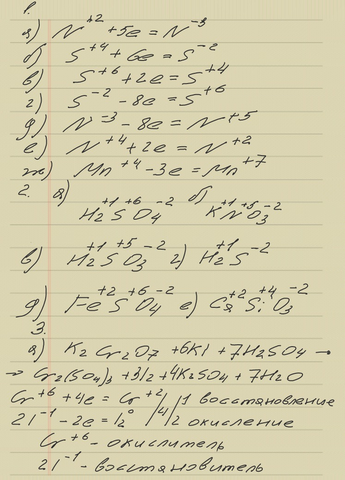 1.
а) N⁺² +5e = N⁻³
б) S⁺⁴ + 6e = S⁻²
в) S⁺⁶ + 2e = S⁺⁴
г) S⁻² - 8e = S⁺⁶
д) N⁻³ - 8e = N⁺⁵
е) N⁺⁴ + 2e = N⁺²
ж) Mn⁺⁴ - 3e = Mn⁺⁷
2. а) б)
+1 +6 -2 +1 +5 -2
H₂SO₄ KNO₃
+1 +5 -2 +1
в) H₂SO₃ г) H₂S⁻²
+2 +6 -2 +2 +4 -2
д) FeSO₄ е) CaSiO₃
3.
а) K₂Cr₂O₇ +6KI + 7H₂SO₄ →
→ Cr₂(SO₄)₃ + 3I₂ + 4K₂SO₄ + 7H₂O
Cr⁺⁶ + 4e = Cr⁺² /4/1 восстановление
2I⁻¹ - 2e = I₂⁰ /2 окисление
Cr⁺⁶ - окислитель
2I⁻¹ - восстановитель